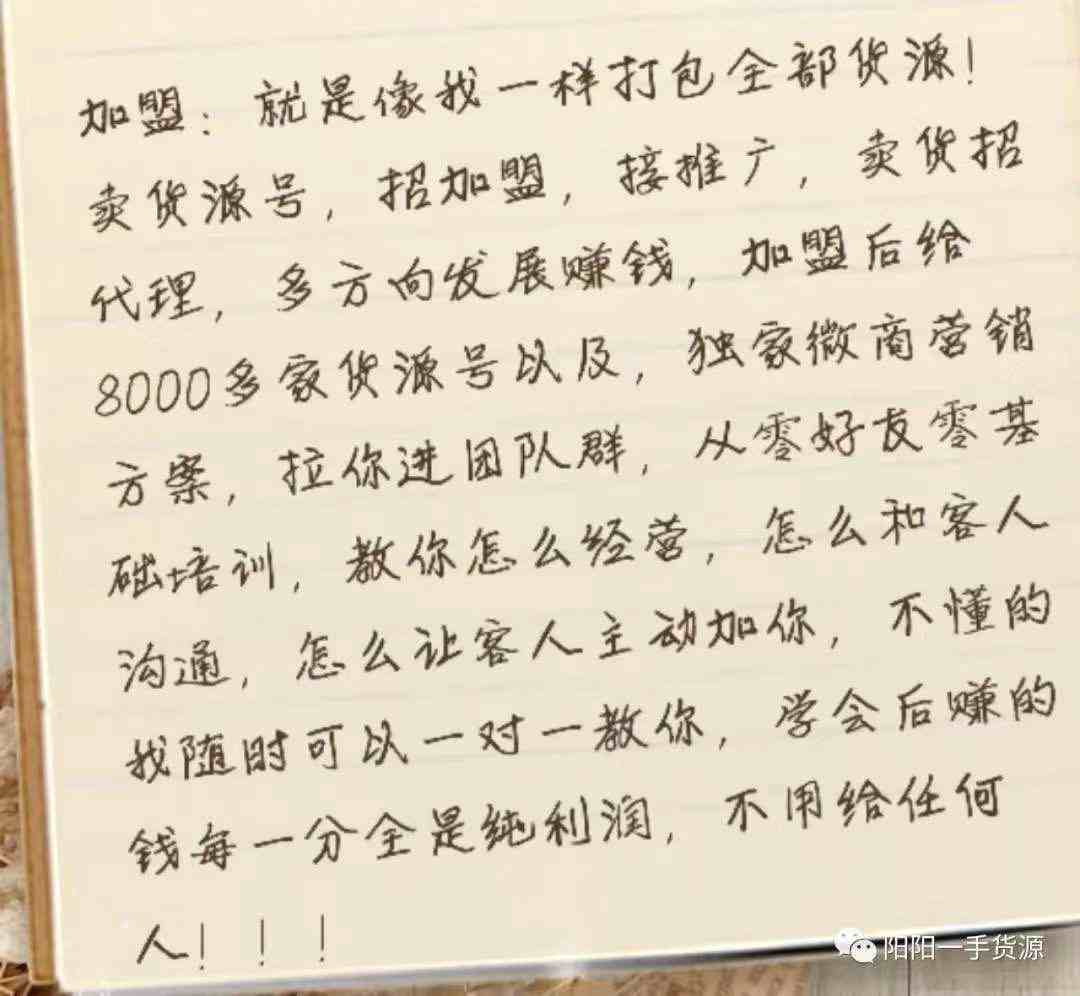 加盟：就是像我一样打包全部货源！
卖货源号，招加盟，接推广，卖货招
代理，多方向发展赚钱，加盟后给
8000多家货源号以及，独家微商营销
方案，拉你进团队群，从零好友零基
础培训，教你怎么经营，怎么和客人
沟通，怎么让客人主动加你，不懂的
我随时可以一对一教你，学会后赚的
钱每一分全是纯利润，不用给任何
人！！！
阳阳一手货源